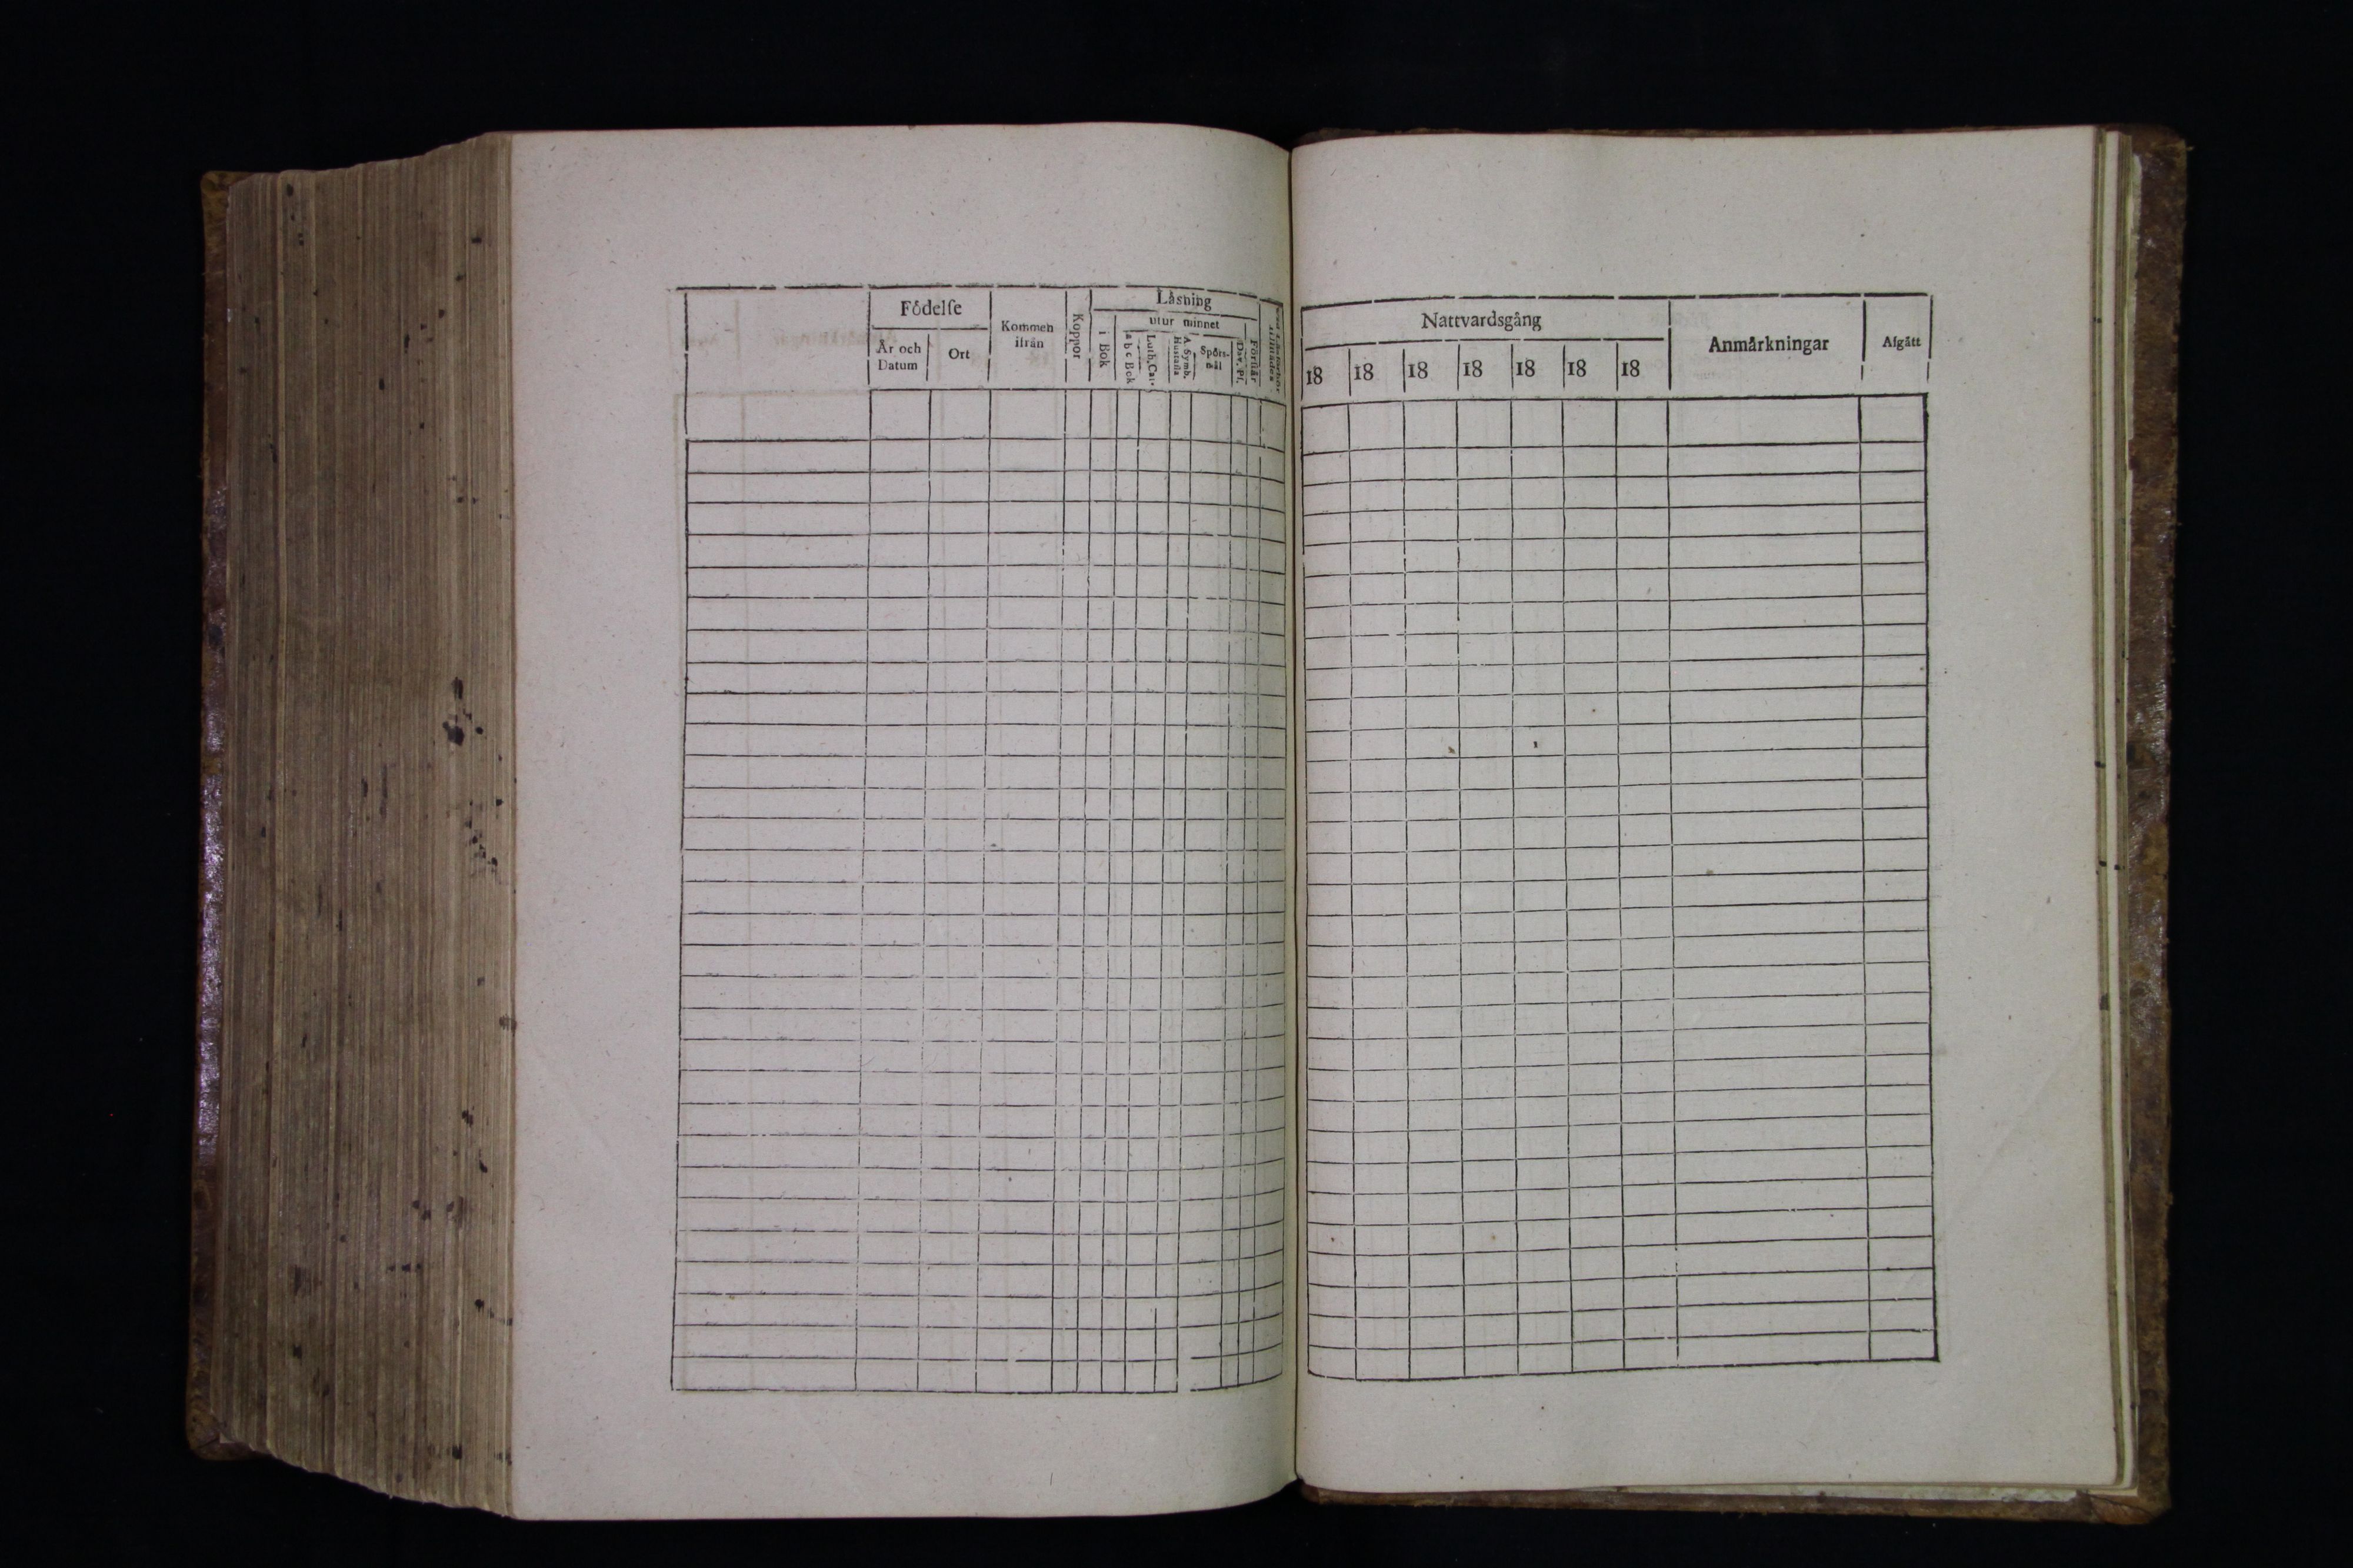 Födelse
År och Datum
Ort
Kommen ifrån
Koppor
Läsning
i Bok
utur minnet
a b c Bok
Luth. Cat.
A. Symb. Hustafla
Spörs-mål
Dav. Ps.
Förstår
Nattvardsgång
18 18 18 18 18 18 18
Anmärkningar
Afgått